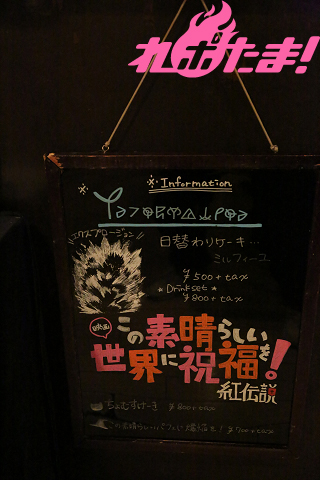 れぷたま!
※Information
エクスプロージョン
日替わりケーキ…
ミルフィーユ
¥500+tax
*Drinkset*
¥800+tax
映画
この素晴らしい
世界に祝福を!
紅伝説
ちょむすけーき ¥800+tax
この素晴らしいパフェに爆焔を! ¥900+tax